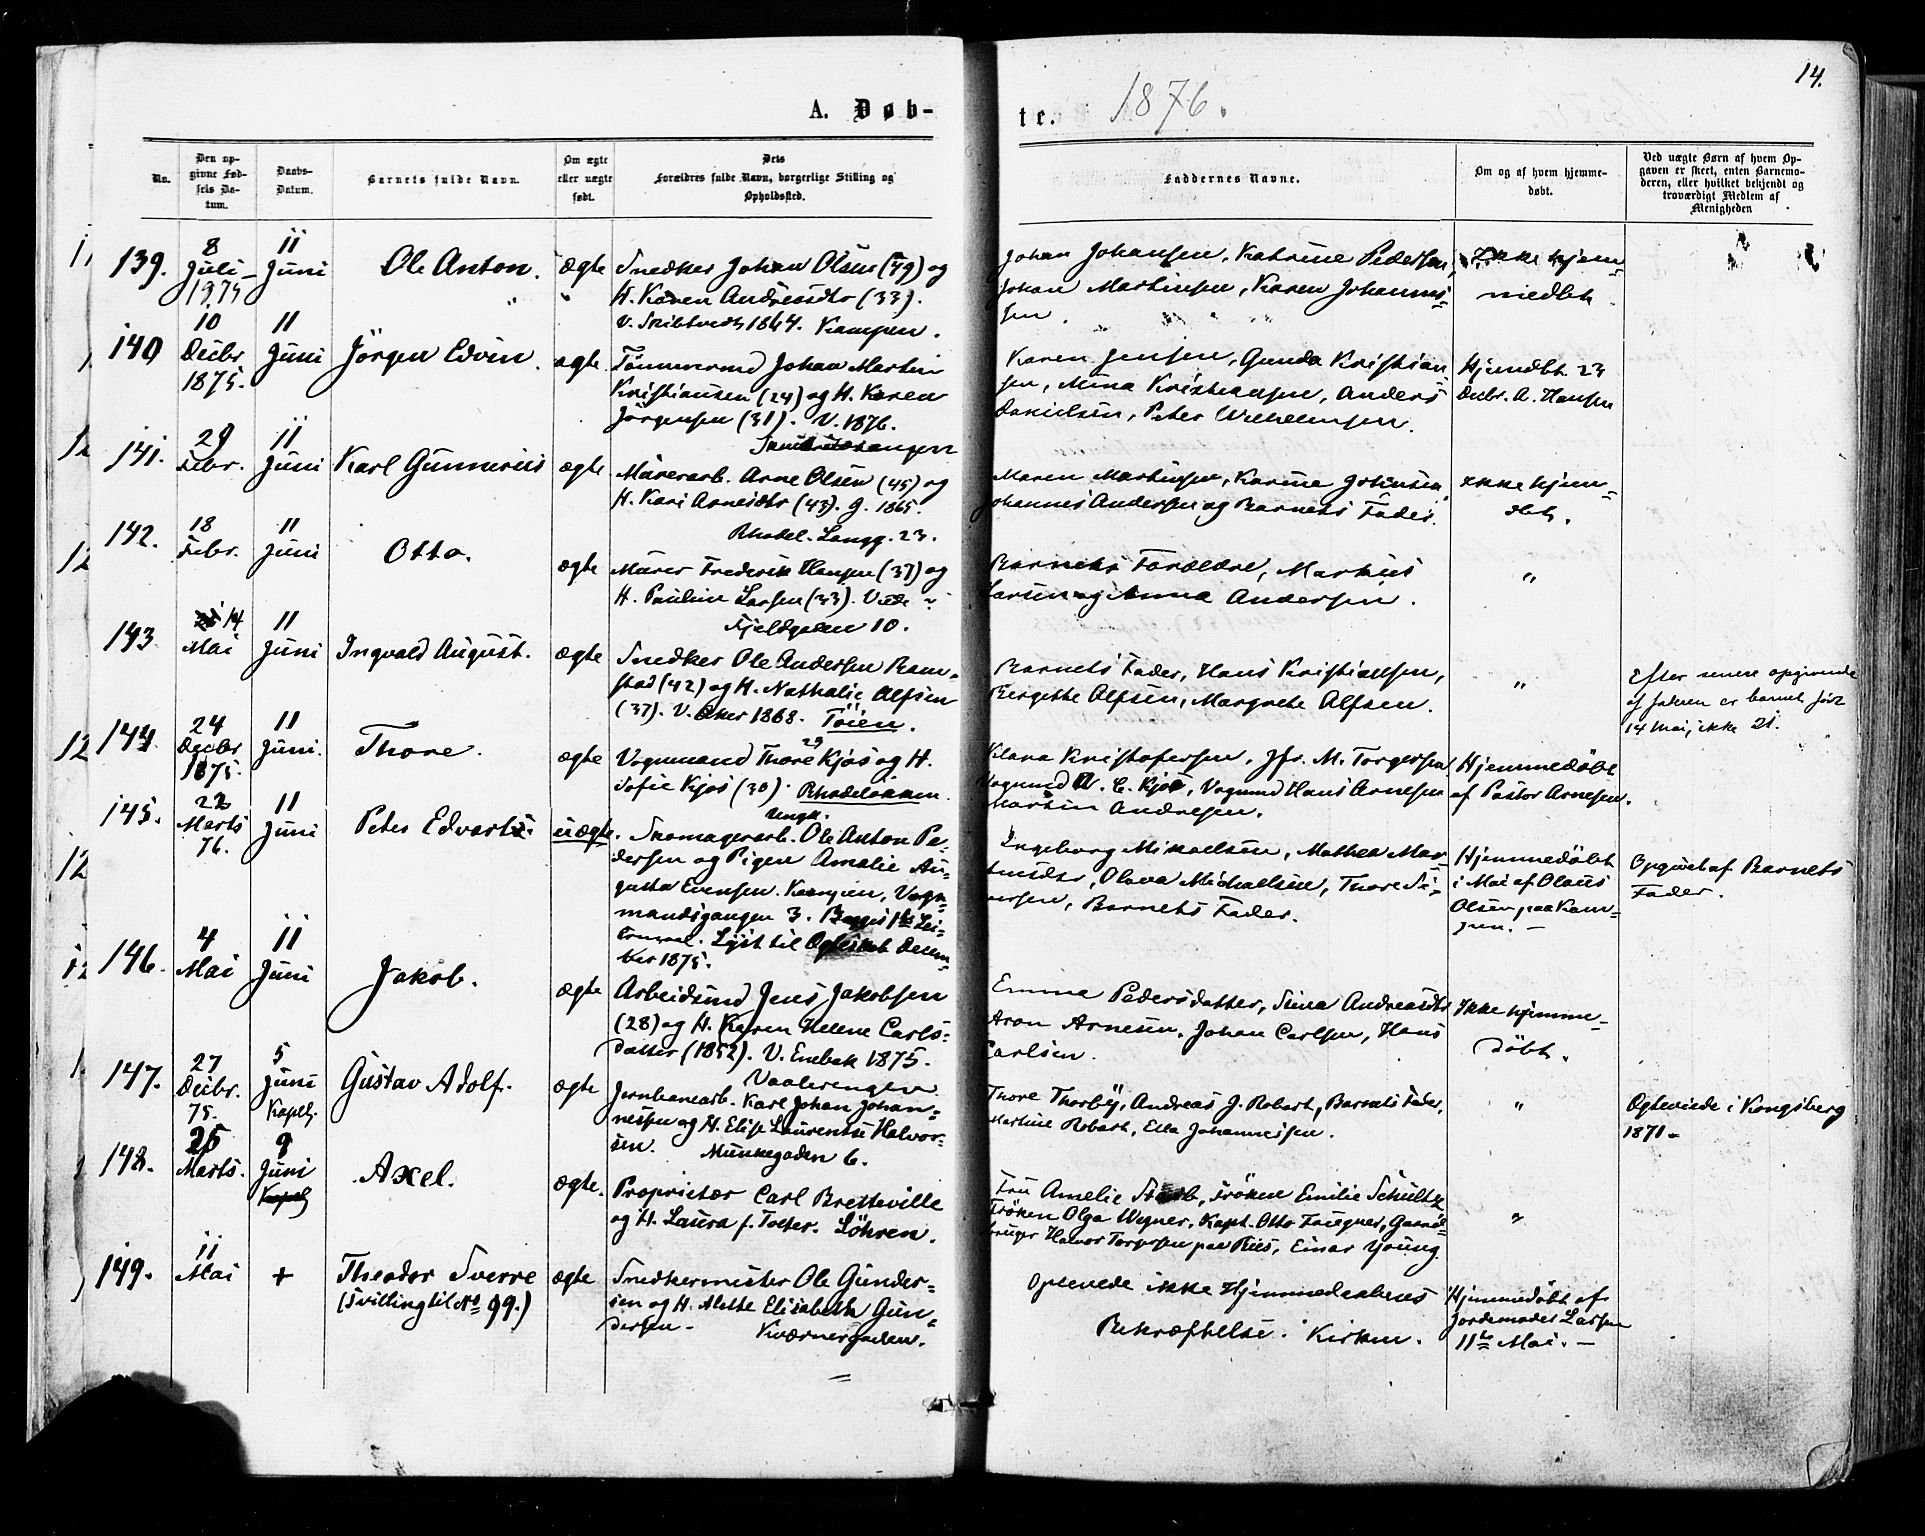 14.
A. Døb-
te. 1876.
No.
Den op-
givne Fød-
sels Da-
tum.
Daabs-
Datum.
Barnets fulde Navn.
Om ægte
eller uægte
født.
Dets
Forældres fulde Navn, borgerlige Stilling og
Opholdssted.
Faddernes Navne.
Om og af hvem hjemme-
døbt.
Ved uægte Børn af hvem Op-
gaven er skeet, enten Barnemo-
deren, eller hvilket bekjendt og
troværdigt Medlem af
Menigheden
139.
8
Juli
1875
11
Juni
Ole Anton.
ægte
Snedker Johan Olsen (49) og
H. Karen Andreasdtr (33).
V. Skibtvedt 1864. Kampen.
Johan Johansen, Katrine Pedersen,
Johan Martinsen, Karen Johannes-
sen.
Ikke hjem-
medbt.
140
10
Decbr
1875.
11
Juni
Jörgen Edvin.
ægte.
Tömmermd Johan Martin
Kristiansen (24) og H. Karen
Jörgensen (31). V. 1876.
Karen Jensen, Gunda Kristian-
sen, Mina Kristiansen, Anders
Danielsen, Peter Wilhelmsen.
Hjemdbt. 23
Decbr. A. Hansen
141.
29
Febr.
11
Juni
Karl Gunnerius
ægte
Murerarb. Arne Olsen (45) og
H. Kari Arnesdtr (43). G. 1865.
Rhodel. Langg. 23.
Maren Martinsen, Karine Johnsen,
Johannes Andersen og Barnets Fader.
Ikke hjem-
dbt.
142.
18
Febr.
11
Juni
Otto.
ægte
Murer Frederik Hansen (37) og
H. Pauline Larsen (33). Viede ?
Fjeldgaden 10.
Barnets Forældre, Markus
Larsen og Anna Andersen.
"
143
14
Mai
11
Juni
Ingvald August.
ægte
Snedker Ole Andersen Ram-
stad (42) og H. Nathalie Alfsen
(37). V. Aker 1868. Töien.
Barnets Fader, Hans Kristiansen,
Bergette Alfsen, Margrete Alfsen.
"
Efter senere opgivende
af faderen er barnet född
14 Mai, ikke 21.
144.
24
Decbr
1875.
11
Juni.
Thore.
ægte
Vognmand Thore Kjös og H.
Sofie Kjös (30). Rhodelökken.
Klara Kristofersen, Jfr. M. Torgersen
Vognmd W. C. Kjös, Vognmd Hans Arnesen
Martin Andresen.
Hjemmedöbt
af Pastor Arnesen.
145.
22
Marts
76.
11
Juni
Peter Edvart
uægte.
Ungk.
Skomagerarb. Ole Anton Pe-
dersen og Pigen Amalie Au-
gusta Evensen. Kampen, Vogn-
mandsgangen 3. Begges 1ste Lei-
ermaal. Lyst til Ægteskab Decem-
ber 1875.
Ingeborg Mikaelsen, Mathea Mar-
tinsdtr, Olava Michaelsen, Thore Si-
Barnets Fader.
Hjemmedöbt
i Mai af Olaus
Olsen paa Kam-
pen. -
Opgivet af Barnets
Fader.
146.
4
Mai
11
Juni
Jakob.
ægte
Arbeidsmd Jens Jakobsen
(28) og H. Karen Helene Carls-
datter (1852). V. Enebak 1875.
Vaalerengen
Emma Pedersdatter, Stina Andreasdtr
Aron Arnesen, Johan Carlsen, Hans
Carlsen.
Ikke hjemme-
döbt.
147.
27
Decbr.
75.
5
Juni
Kapel.
Gustav Adolf.
ægte
Jernbanearb. Karl Johan Johan-
nesen og H. Elise Laurentse Halvor-
sen. Munkegaden 6.
Thore Thorby, Andreas J. Robart, Barnets Fader,
Martine Robart, Ella Johannessen.
"
Ægteviede i Kongsberg
1871.
148.
25
Marts.
9
Juni
Kapel
Axel.
ægte.
Proprietær Carl Bretteville
og H. Laura f. Tofter. Löhren.
Fru Amelie Staib, Fröken Emilie Schultz
Fröken Olga Wegner, Kapt. Otto Faugner, Gaard-
bruger Halvor Torgersen paa Riis, Einar Young.
"
149.
11
Mai
+
Theodor Sverre
(Tvilling til No 99.)
ægte
Snedkermester Ole Gunder-
sen og H. Alette Elisabeth Gun-
dersen. Kværnergaden.
Oplevede ikke Hjemmedaabens
Bekræftelse i Kirken.
Hjemmedöbt af
Jordemoder Larsen
11te Mai. -